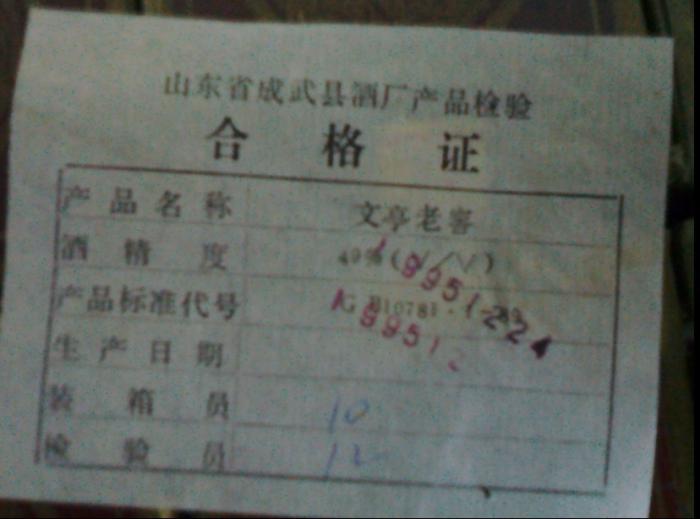 山东省成武县酒厂产品检验
合格证
产品名称 文亭老窖
酒精度 49%(V/V)
产品标准代号 GB10781·1-89
19951224
生产日期
装箱员 10
检验员 12